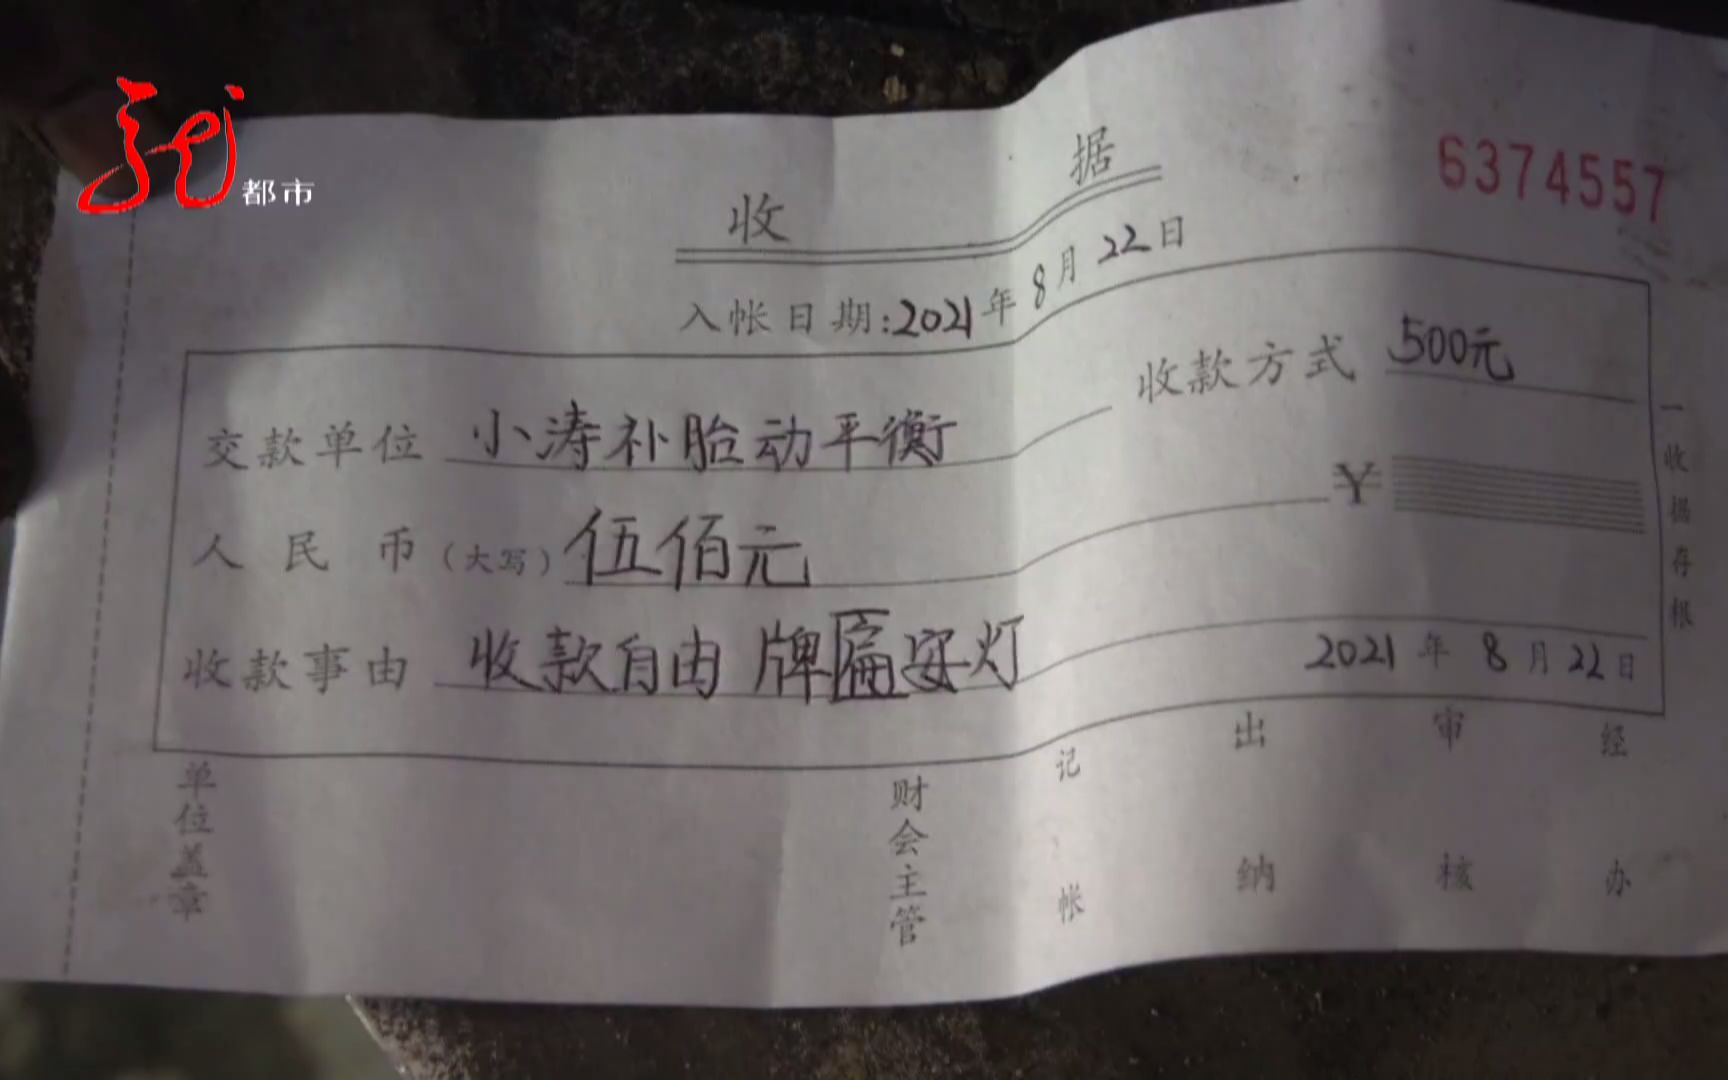 龙都市
6374557
收据
入帐日期:2021年8月22日
交款单位 小涛补胎动平衡 收款方式 500元
人民币(大写)伍佰元 ¥
收款事由 收款自由 牌匾安灯 2021年8月22日
一收据存根
单位盖章 财会主管 记帐 出纳 审核 经办